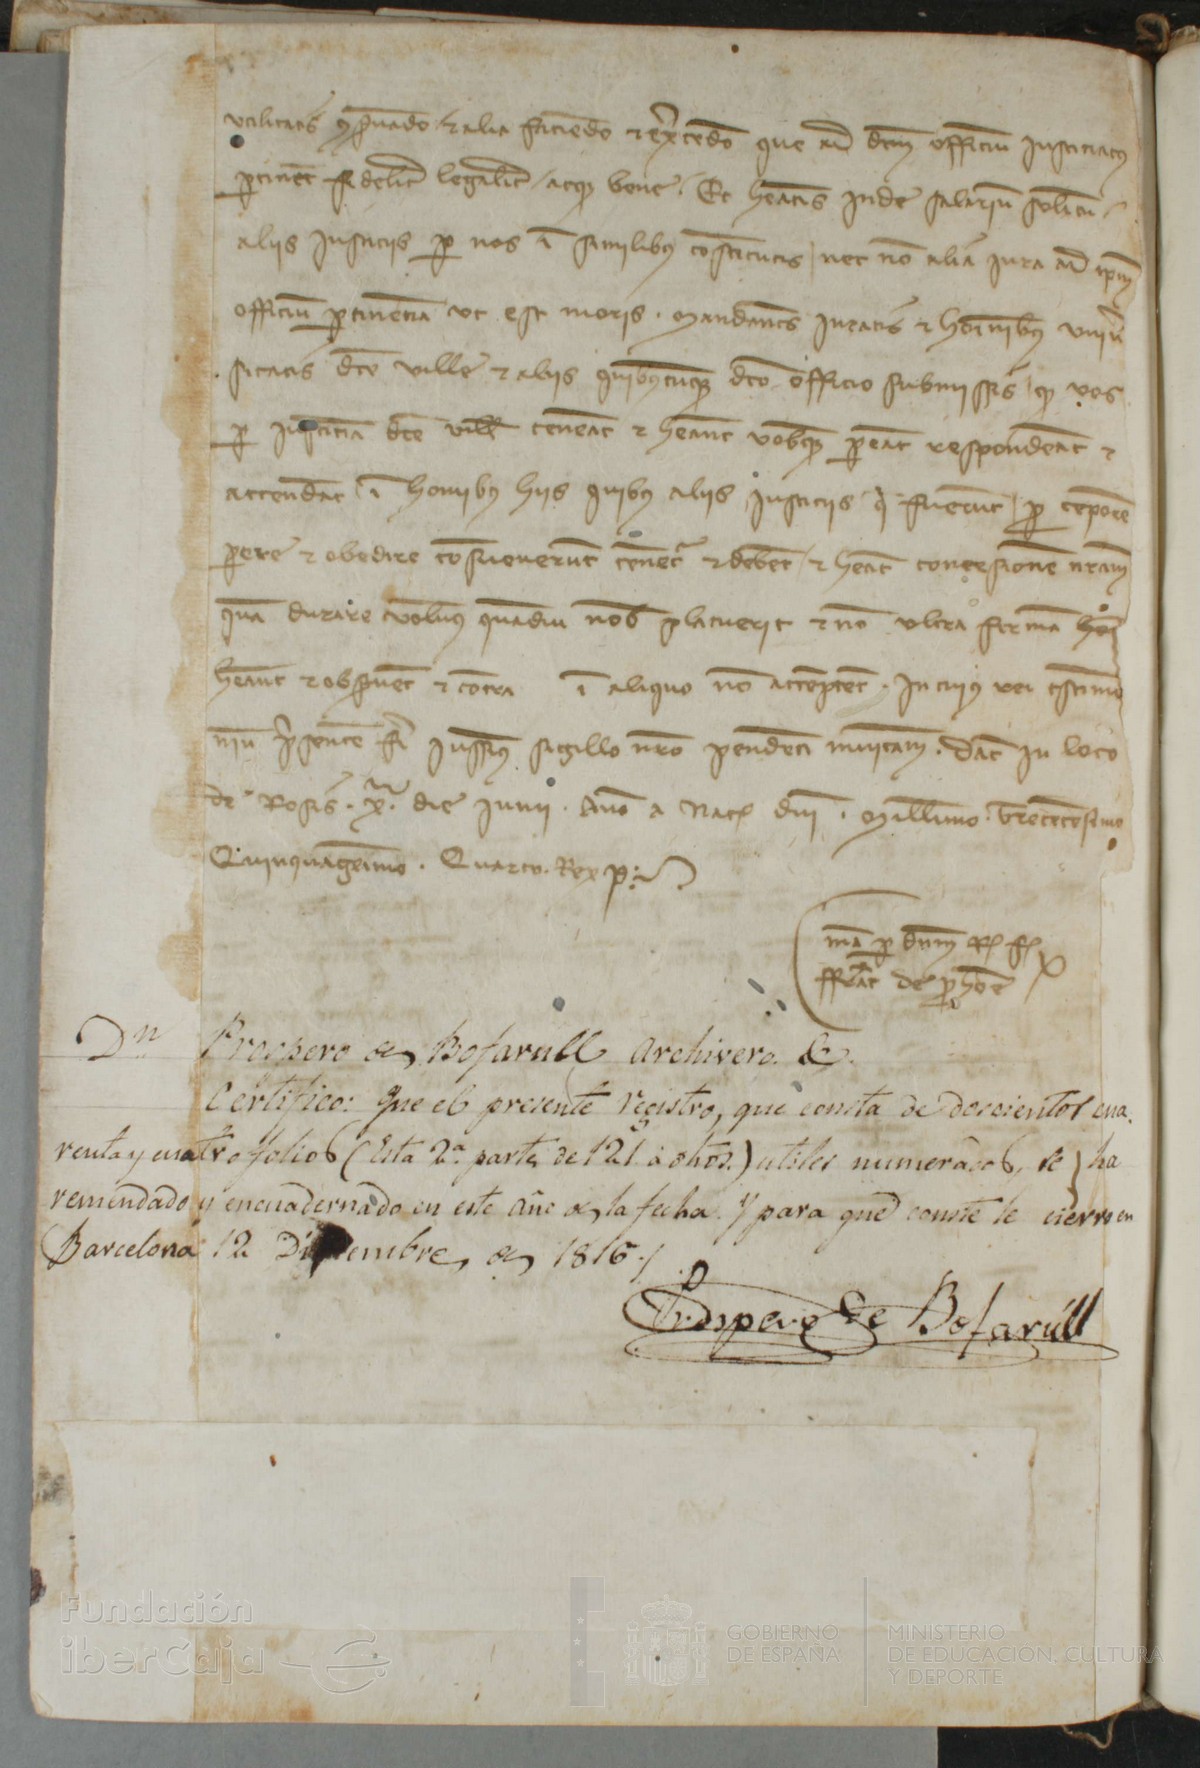 utilitatis conservando / et alia faciendo et exercendo que ad dcm officium justiciatus
ptinet fidelit legalit / atq bene. Et heatis inde salarium solitu
aliis justiciis p nos i similibus constitutis / nec no alia jura ad ipm
officium ptinentia ut est moris. Mandantes juratis et hoibus univer
sitatis dce ville et aliis quibuscumq dco officio submissis / q vos
p justicia dce ville teneat et heant vobisq pareat respondeat et
attendat i hiis quibus aliis justiciis q fuerunt / p tempore
parere et obedire consueverunt tenet et debet / et heat concessione nram
qua durare volumus quadiu nob placuerit et no ultra firma
heant et observet et contra i aliquo no attemptet. In cujus rei testimo
niu psente fi jussimus sigillo nro pendeti munitam. Dat in loco
de Rosis. x. die Junii. Anno a Nat dni. Millimo. Trecentesimo
Quinquagesimo. Quarto. Rex p.
ma p dnum R f
ffrac de phoe
Dn Prospero de Bofarull Archivero &.
Certifico: Que el presente registro, que consta de doscientos cua-
renta y cuatro folios (Esta 2a. parte de 121 a otros) utiles numerados, se ha
remendado y encuadernado en este año de la fecha. Y para que conste le cierro en
Barcelona 12 Diciembre de 1816.
Prospero de Bofarúll
Fundación
iberCaja
GOBIERNO
DE ESPAÑA
MINISTERIO
DE EDUCACIÓN, CULTURA
Y DEPORTE